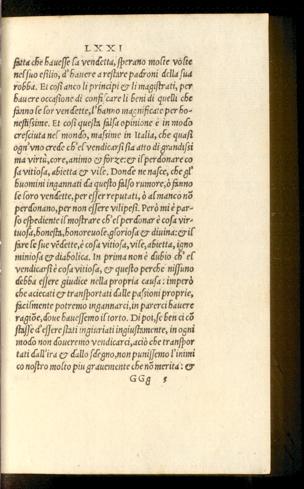 LXXI
fatta che hauesse la vendetta, sperano molte volte
nel suo esilio, d'hauere a restare padroni della sua
robba. Et così anco li principi & li magistrati, per
hauere occasione di confiscare li beni di quelli che
fanno le lor vendette, l'hanno magnificate per ho-
nestissime. Et così questa falsa opinione è in modo
cresciuta nel mondo, massime in Italia, che quasi
ogn'vno crede ch'el vendicarsi sia atto di grandissi
ma virtù, core, animo & forze: & il perdonare co
sa vitiosa, abietta & vile. Donde ne nasce, che gl'
huomini ingannati da questo falso rumore, ò fanno
le loro vendette, per esser reputati, ò almanco nõ
perdonano, per non essere vilipesi. Però mi è par-
so espediente il mostrare ch'el perdonar è cosa vir-
tuosa, honesta, honoreuole, gloriosa & diuina: & il
fare le sue vẽdette, è cosa vitiosa, vile, abietta, igno
miniosa & diabolica. In prima non è dubio ch'el
vendicarsi è cosa vitiosa, & questo perche nissuno
debba essere giudice nella propria causa: imperò
che aciecati & transportati dalle passioni proprie,
facilmente potremo ingannarci, in parerci hauere
ragiõe, doue hauessemo il torto. Di poi, se ben ci cõ
stasse d'essere stati ingiuriati ingiustamente, in ogni
modo non doueremo vendicarci, aciò che transpor
tati dall'ira & dallo sdegno, non punissemo l'inimi
co nostro molto piu grauemente che nõ merita: &
GGg 5